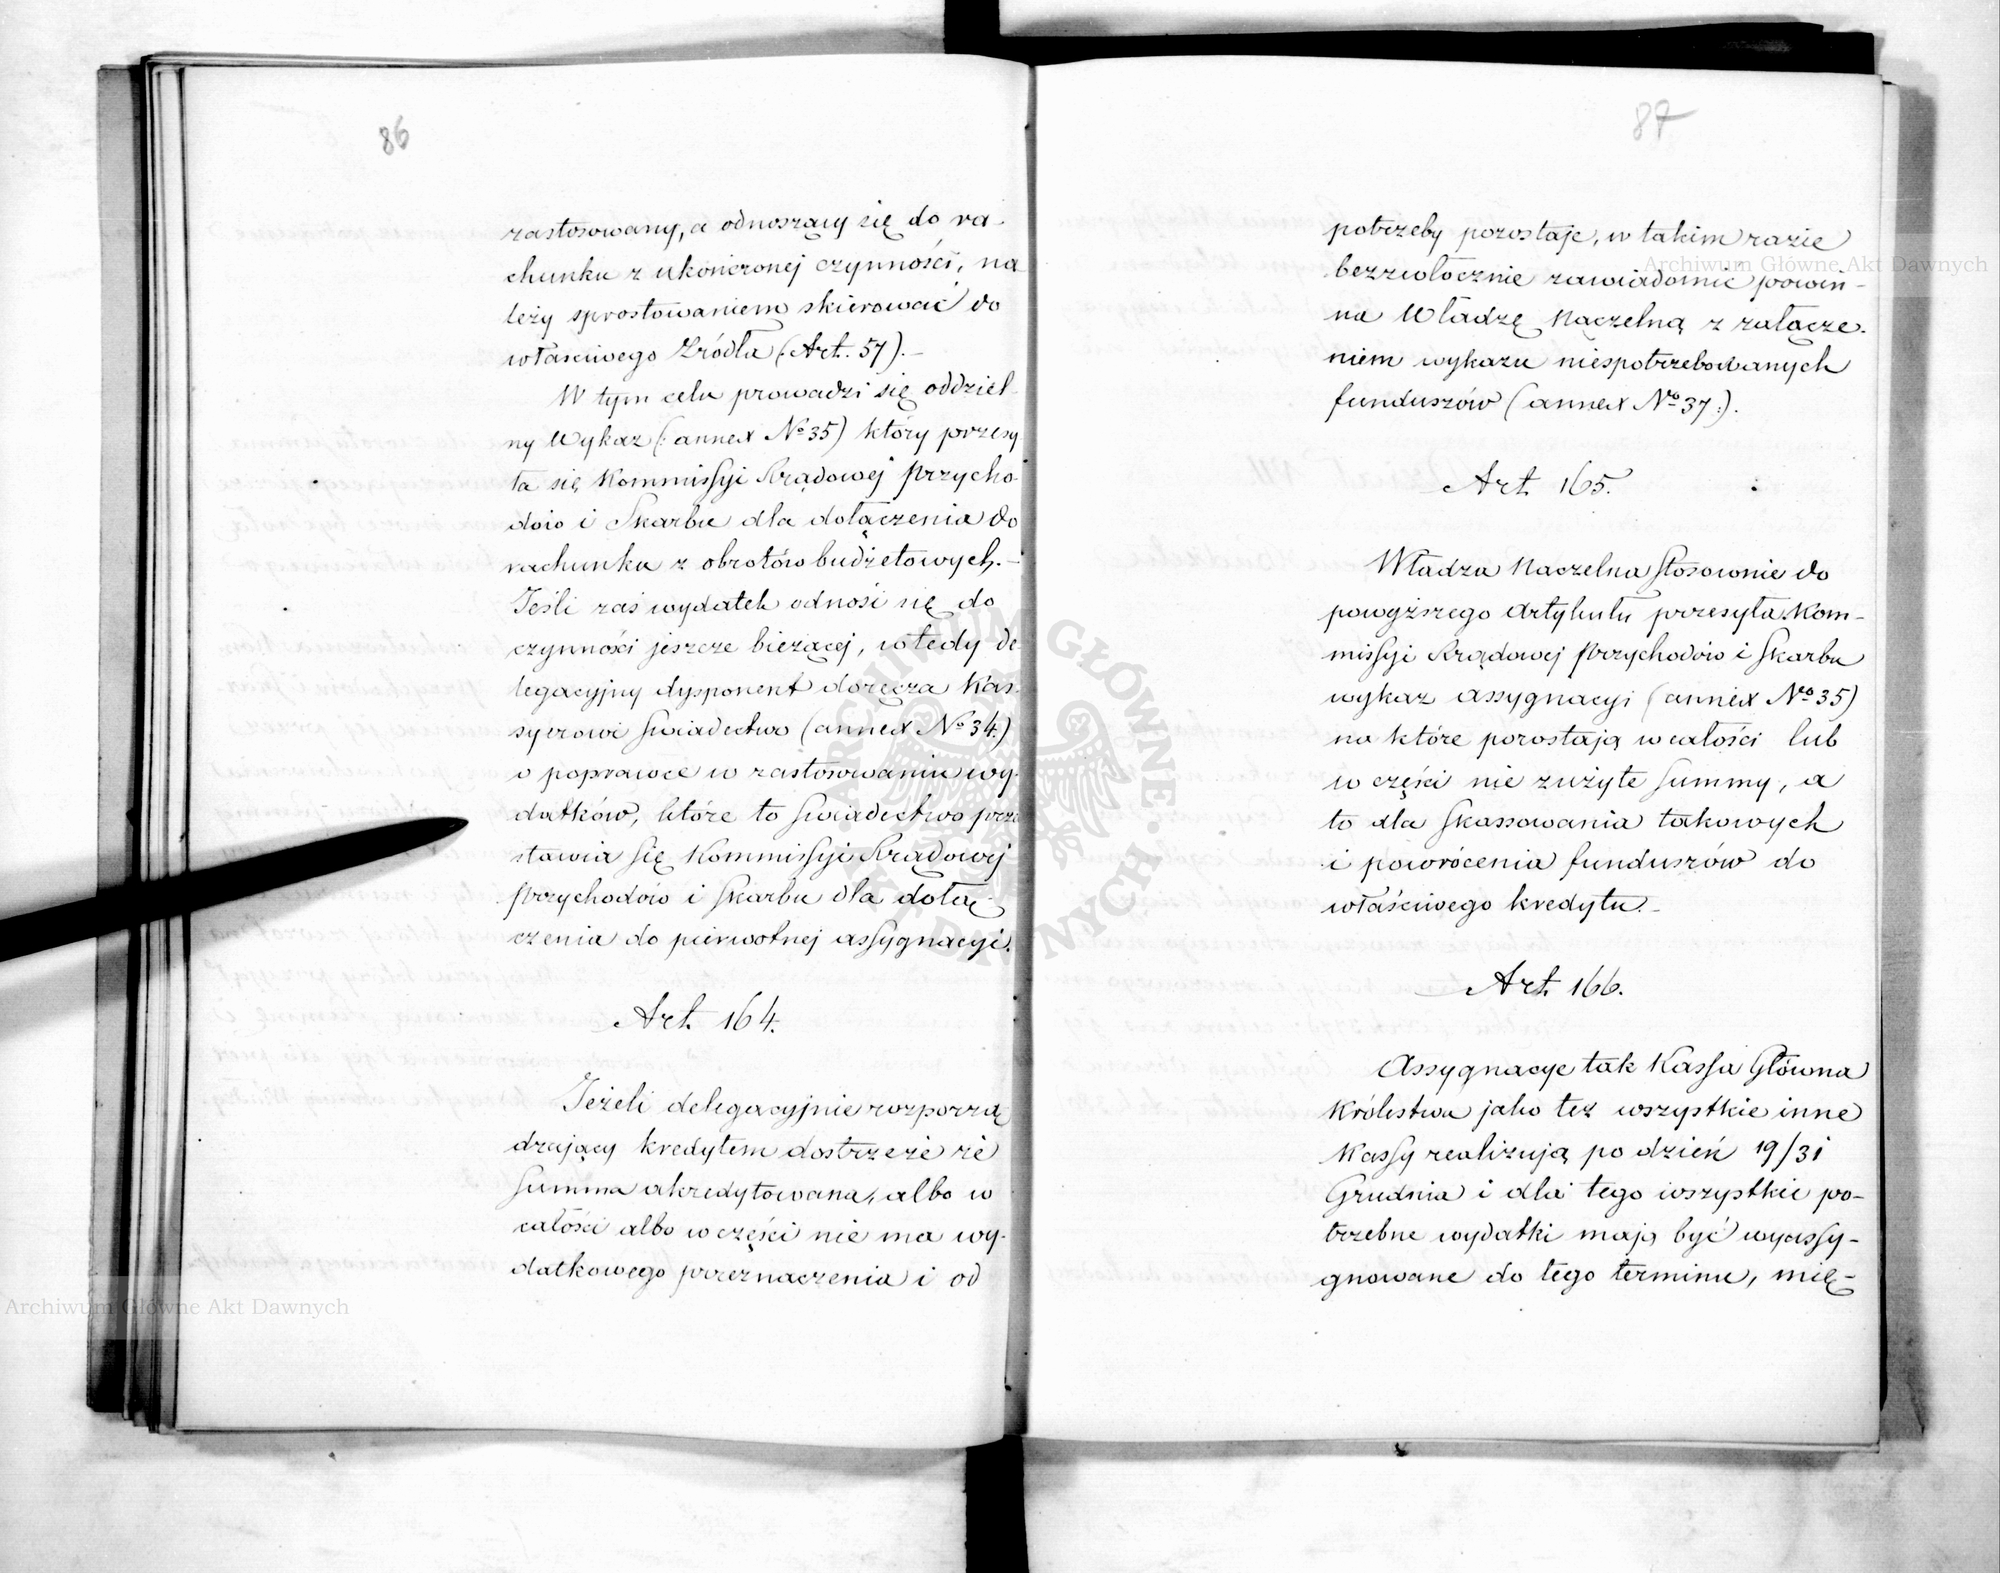 86
zastosowany, a odnoszący się do ra-
chunku z ukończonej czynności, na
leży sprostowaniem skierować do
właściwego Źródła (Art. 57).–
W tym celu prowadzi się oddziel-
ny Wykaz (: annex No 35) który przesy
ła się Kommissyi Rządowej Przycho-
dów i Skarbu dla dołączenia do
rachunku z obrotów budżetowych.–
Jeśli zaś wydatek odnosi się do
czynności jeszcze bieżącej, wtedy de-
legacyjny dysponent doręcza Kas-
syerowi Świadectwo (annex No 34.)
o poprawce w zastosowaniu wy-
datków, które to Świadectwo prze
stawia się Kommissyi Rządowej
Przychodów i Skarbu dla dołą-
czenia do pierwotnej assygnacyi.
Art. 164.
Jeżeli delegacyjnie rozporzą
dzający kredytem dostrzeże że
Summa akredytowana, albo w
całości albo w części nie ma wy-
datkowego przeznaczenia i od
87
potrzeby pozostaje, w takim razie
bezzwłocznie zawiadomić powin-
na Władzę Naczelną z załącze-
niem wykazu niespotrzebowanych
funduszów (annex No 37:).
Art. 165.
Władza Naczelna Stosownie do
powyższego Artykułu przesyła Kom-
missyi Rządowej Przychodów i Skarbu
wykaz assygnacyi (annex No 35)
na które pozostają w całości lub
w części nie zużyte Summy, a
to dla Skassowania takowych
i powrócenia funduszów do
właściwego kredytu.–
Art. 166.
Assygnacye tak Kassa Główna
Królestwa jako też wszystkie inne
Kassy realizują po dzień 19/31
Grudnia i dla tego wszystkie po-
trzebne wydatki mają być wyassy-
gnowane do tego terminu, mię-
Archiwum Główne Akt Dawnych
Archiwum Główne Akt Dawnych
ARCHIWUM GŁÓWNE AKT DAWNYCH